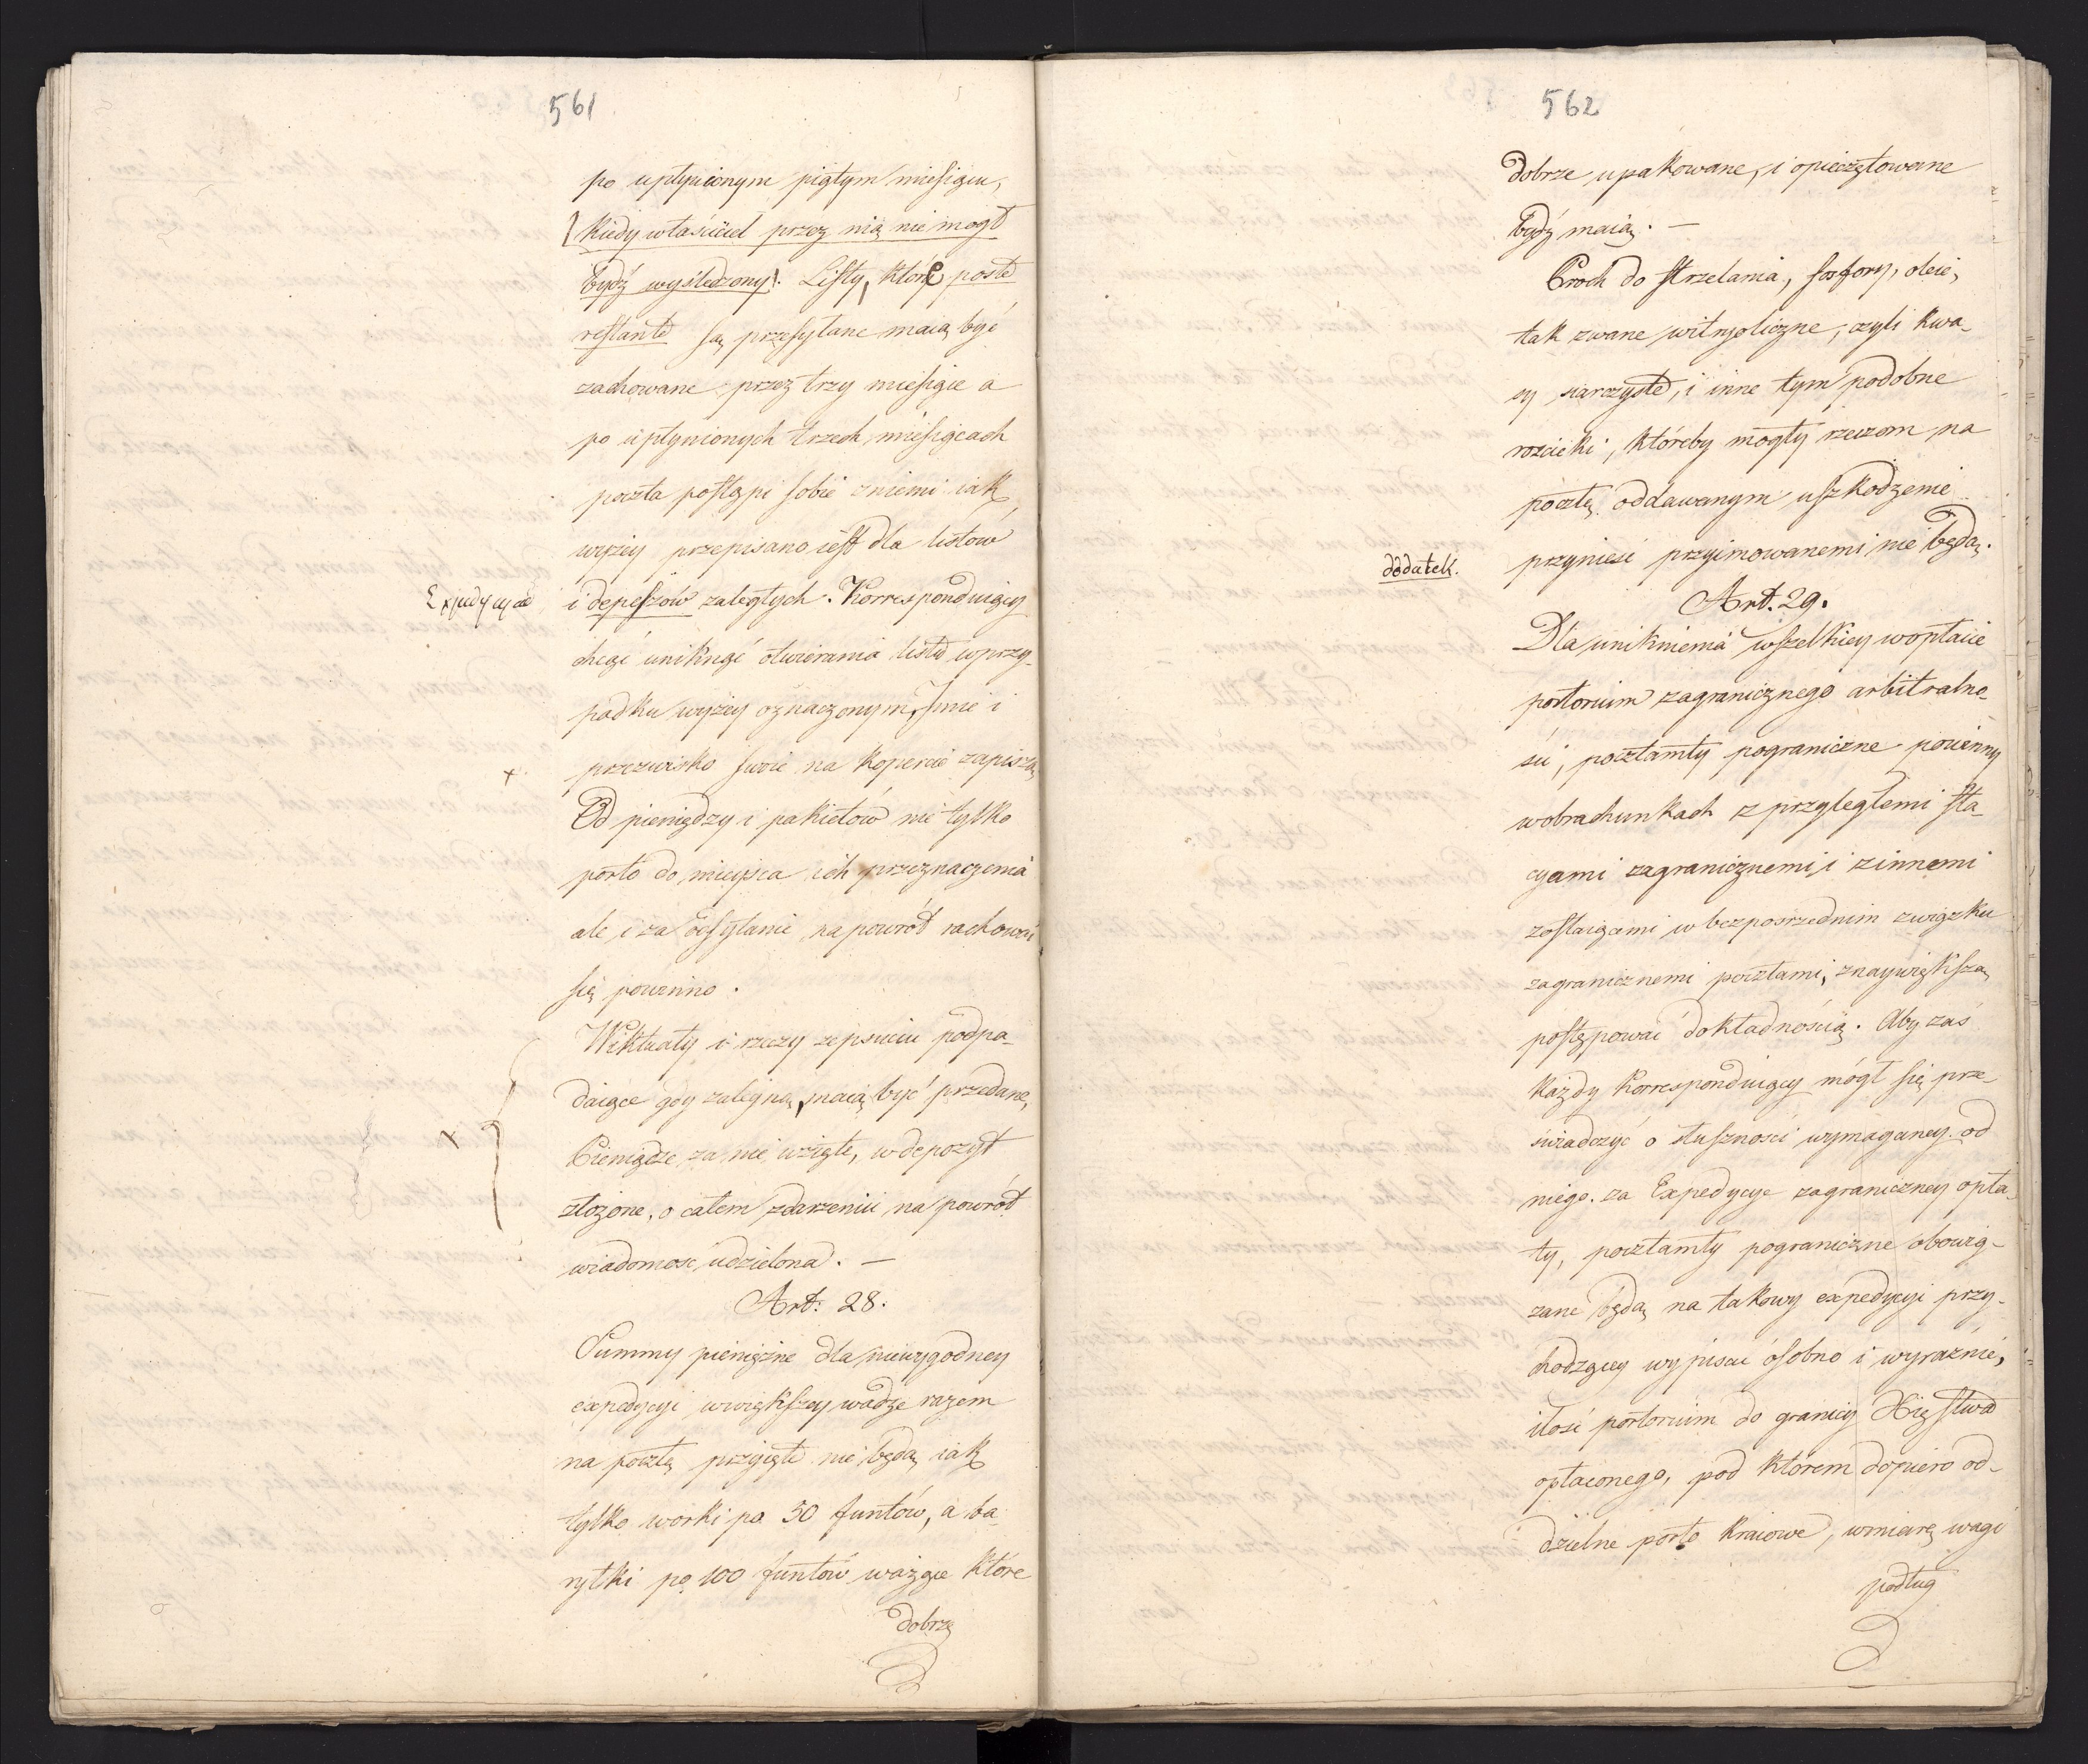 561
po upłynionym piątym miesiącu,
(kiedy właściciel przez nią nie mogł
bydź wyśledzony). Listy, które poste
restante są przesyłane maią być
zachowane przez trzy miesiące a
po upłynionych trzech miesiącach
poczta postąpi sobie z niemi iak
wyżey przepisano iest dla listów
Expedycye
i depeszów zaległych. Korrespondujący
chcąc uniknąć otwierania listu w przy-
padku wyżey oznaczonym, Imie i
przezwisko swoie na kopercie zapiszą
x
Od pieniędzy i pakietów nie tylko
porto do mieysca ich przeznaczenia
ale i za odsyłanie na powrót rachować
się powinno.
Wiktuały i rzeczy zepsuciu podpa-
daiące gdy zalegną, maią być przedane,
x
Pieniądze za nie wzięte, w depozyt
złożone, o całem zdarzeniu na powrót
wiadomosc udzielona. —
Art: 28.
Summy pieniężne dla niewygodney
expedycyi w większey wadze razem
na pocztę przyięte nie będą iak
tylko worki po 50 funtów, a ba-
ryłki po 100 funtów ważące które
dobrze
562
dobrze upakowane, i opieczętowane
bydź maią. —
Proch do strzelania, fosfory, oleie,
tak zwane witryoliczne, czyli kwa-
sy siarczyste, i inne tym podobne
rozcieki, któreby mogły rzeczom na
pocztę oddawanym uszkodzenie
dodatek.
przynieść przyimowanemi nie będą.
Art. 29.
Dla uniknienia wszelkiey w opłacie
portorium zagranicznego arbitralno-
ści, pocztamty pograniczne powinny
w obrachunkach z przyległemi sta-
cyami zagranicznemi, i z innemi
zostaiącemi w bezposrzednim związku
zagranicznemi pocztami, z naywiększą
postępować dokładnością. Aby zaś
każdy Korrespondujący mógł się prze-
świadczyć o słuszności wymaganey od
niego za Expedycye zagraniczney opła-
ty, pocztamty pograniczne obowią-
zane będą na takowy expedycyi przy-
chodzącey wypisać osobno i wyraźnie,
ilość portorium do granicy Xięstwa
opłaconego, pod ktorem dopiero od-
dzielne porto kraiowe, w miarę wagi
podług